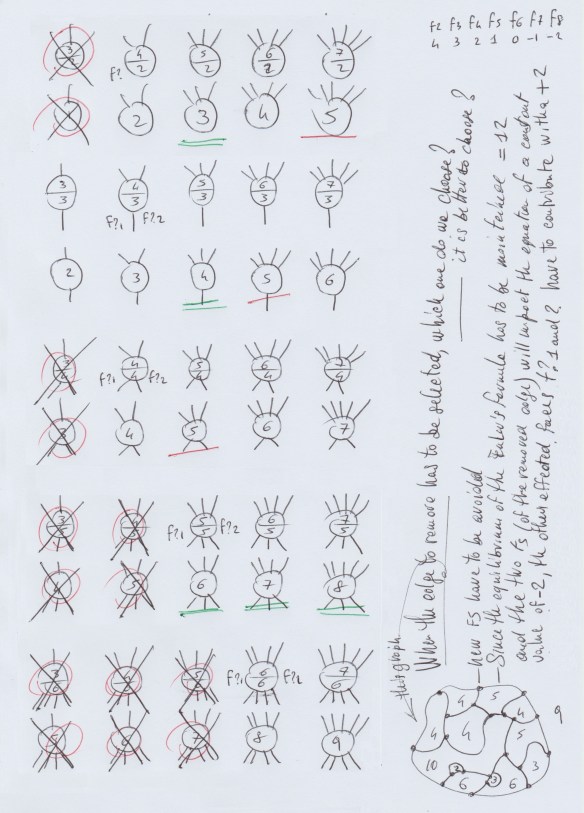 F2 F3 F4 F5 F6 F7 F8
4 3 2 1 0 -1 -2
3 4 5 6 7
2 2 2 2 2
F?
2 3 4 5
3 4 5 6 7
3 3 3 3 3
F?1 F?2
2 3 4 5 6
4 5 6 7
F?1 4 4 4 4 F?2
4 5 6 7
5 6 7
F?1 5 5 5 F?2
4 5 6 7 8
F?1 6 7 F?2
6 6
5 6 7 8 9
this graph
When the edge to remove has to be selected, which one do we choose?
it is better to choose?
- New F5 have to be avoided
- Since the equilibrium of the Euler's formula has to be maintained = 12
and the two Fs (of the removed edge) will impact the equation of a constant
value of -2, the other effected faces F?1 and 2 have to contribute with a +2
4 5
4 4 4 5
9
10 2 3 3
6 6